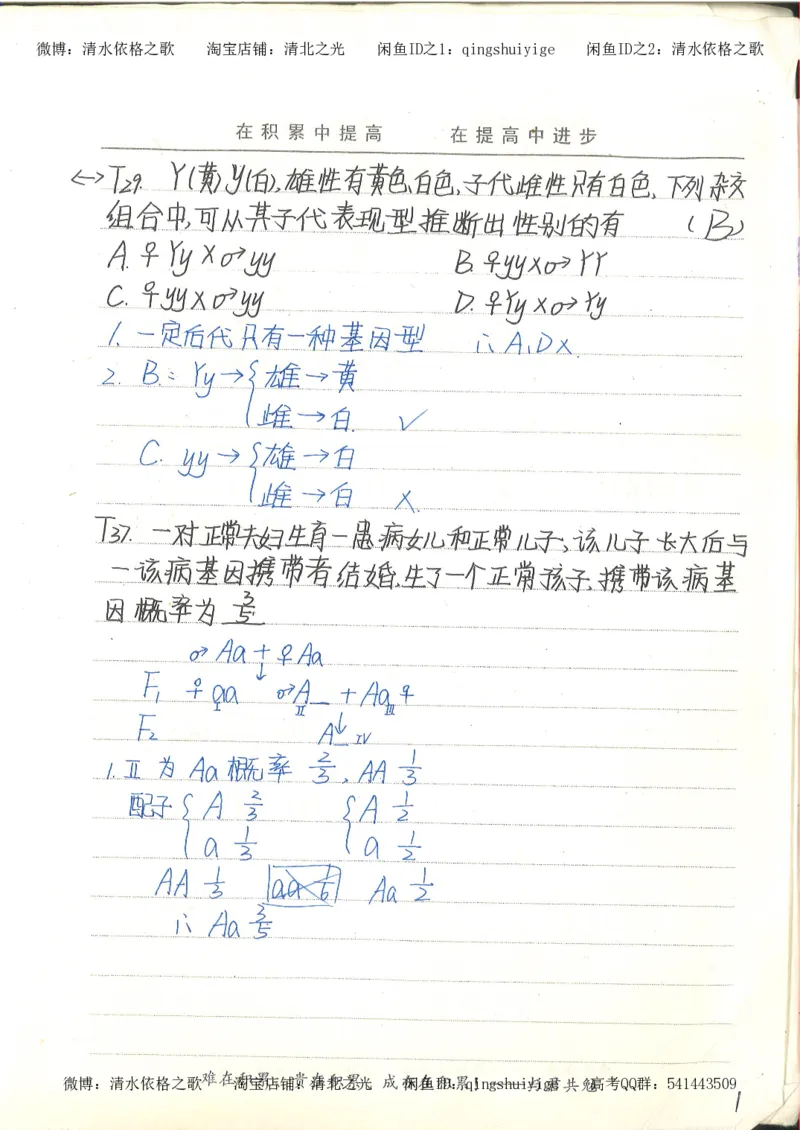 微博：清水依格之歌 淘宝店铺：清北之光 闲鱼ID之1：qingshuiyige 闲鱼ID之2：清水依格之歌
在积累中提高 在提高中进步
<-> T29. Y(黄)y(白),雄性有黄色、白色,子代雌性只有白色,下列杂交
组合中,可从其子代表现型推断出性别的有 (B)
A. ♀Yy×♂yy B. ♀yy×♂YY
C. ♀yy×♂yy D. ♀Yy×♂Yy
1. 一定后代只有一种基因型 ∴A、D×.
2. B.: Yy→{雄→黄
雌→白. √
C. yy→{雄→白
雌→白 ×.
T37. 一对正常夫妇生育一患病女儿和正常儿子,该儿子长大后与
一该病基因携带者结婚,生了一个正常孩子,携带该病基
因概率为 3/5
♂Aa+♀Aa
↓
F1 ♀aa ♂A_ + Aa♀
I II III
↓
F2 A_ IV
1. II 为 Aa 概率 2/3, AA 1/3
配子{A 2/3 {A 1/2
a 1/3 a 1/2
AA 1/3 aa 1/6 Aa 1/2
∴ Aa 3/5
难在积累 贵在积累 成在积累! 与君共勉
微博：清水依格之歌 淘宝店铺：清北之光 闲鱼ID：qingshuiyige 高考QQ群：541443509
1